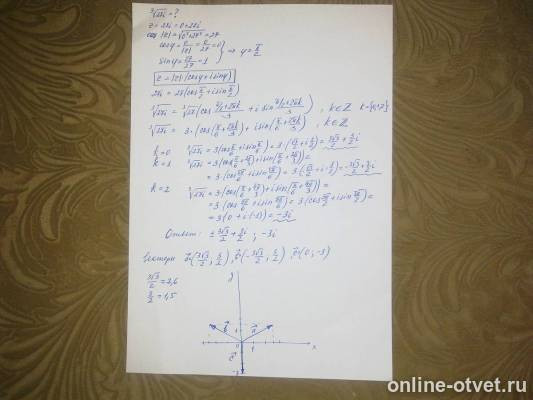 ∛27i = ?
z = 27i = 0+27i
|z| = √0²+27² = 27
cosφ = 0/27 = 0
sinφ = 27/27 = 1 } ⇒ φ = π/2
z = |z|·(cosφ + i sinφ)
27i = 27(cos π/2 + i sin π/2)
∛27i = ∛27 (cos (π/2+2πk)/3 + i sin (π/2+2πk)/3), k∈Z
∛27i = 3·(cos(π/6 + 2πk/3) + i sin(π/6 + 2πk/3)), k∈Z
k=0 ∛27i = 3(cos π/6 + i sin π/6) = 3·(√3/2 + i·1/2) = 3√3/2 + 3/2 i
k=1 ∛27i = 3(cos(π/6 + 2π/3) + i sin(π/6 + 2π/3)) =
= 3·(cos 5π/6 + i sin 5π/6) = 3·(-√3/2 + i·1/2) = -3√3/2 + 3/2 i
k=2 ∛27i = 3(cos(π/6 + 4π/3) + i sin(π/6 + 4π/3)) =
= 3(cos 9π/6 + i sin 9π/6) = 3(cos 3π/2 + i sin 3π/2) =
= 3(0 + i·(-1)) = -3i
Ответ: ± 3√3/2 + 3/2 i ; -3i
Векторы a(3√3/2; 3/2), b(-3√3/2; 3/2), c(0; -3)
3√3/2 ≈ 2,6
3/2 = 1,5
y
b
a
1
0
1
x
c
-3
online-otvet.ru